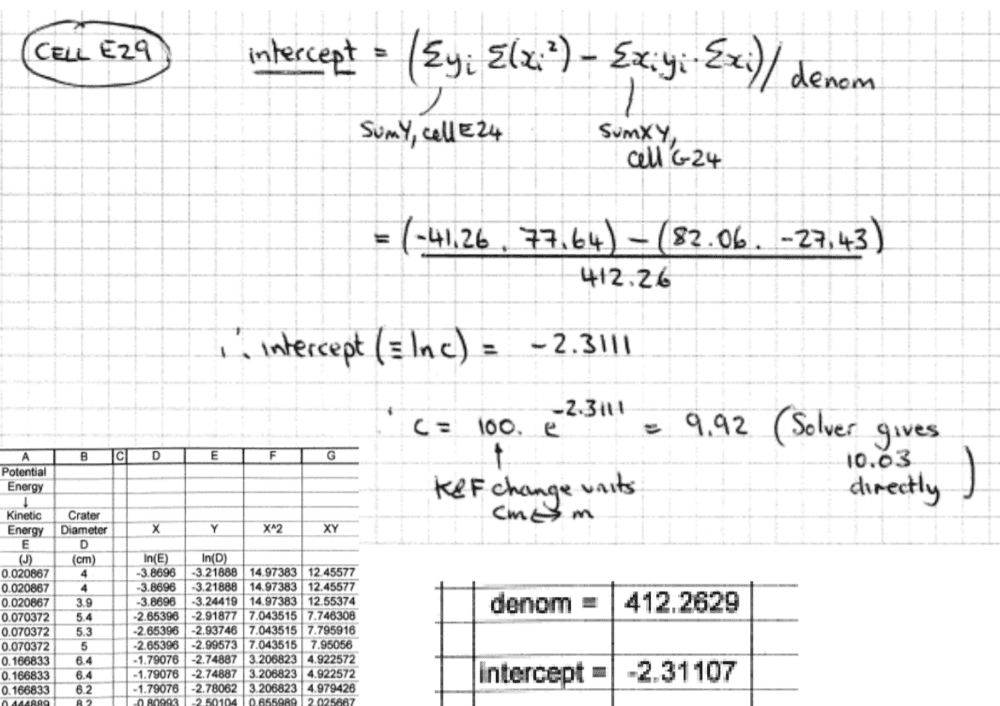 CELL E29
intercept = (Σyᵢ Σ(xᵢ²) - Σxᵢyᵢ . Σxᵢ)/ denom
SumY, cell E24
SumXY,
cell G24
= (-41.26 . 77.64) - (82.06 . -27.43)
412.26
∴ intercept (≡ ln c) = -2.3111
∴ c = 100. e^-2.3111 = 9.92 (Solver gives
10.03
directly)
K&F change units
cm ↔ m
A B C D E F G
Potential
Energy
↓
Kinetic Crater
Energy Diameter X Y X^2 XY
E D
(J) (cm) ln(E) ln(D)
0.020867 4 -3.8696 -3.21888 14.97383 12.45577
0.020867 4 -3.8696 -3.21888 14.97383 12.45577
0.020867 3.9 -3.8696 -3.24419 14.97383 12.55374
0.070372 5.4 -2.65396 -2.91877 7.043515 7.746308
0.070372 5.3 -2.65396 -2.93746 7.043515 7.795916
0.070372 5 -2.65396 -2.99573 7.043515 7.95056
0.166833 6.4 -1.79076 -2.74887 3.206823 4.922572
0.166833 6.4 -1.79076 -2.74887 3.206823 4.922572
0.166833 6.2 -1.79076 -2.78062 3.206823 4.979426
0.444889 8.2 -0.80993 -2.50104 0.655989 2.025667
denom = 412.2629
intercept = -2.31107